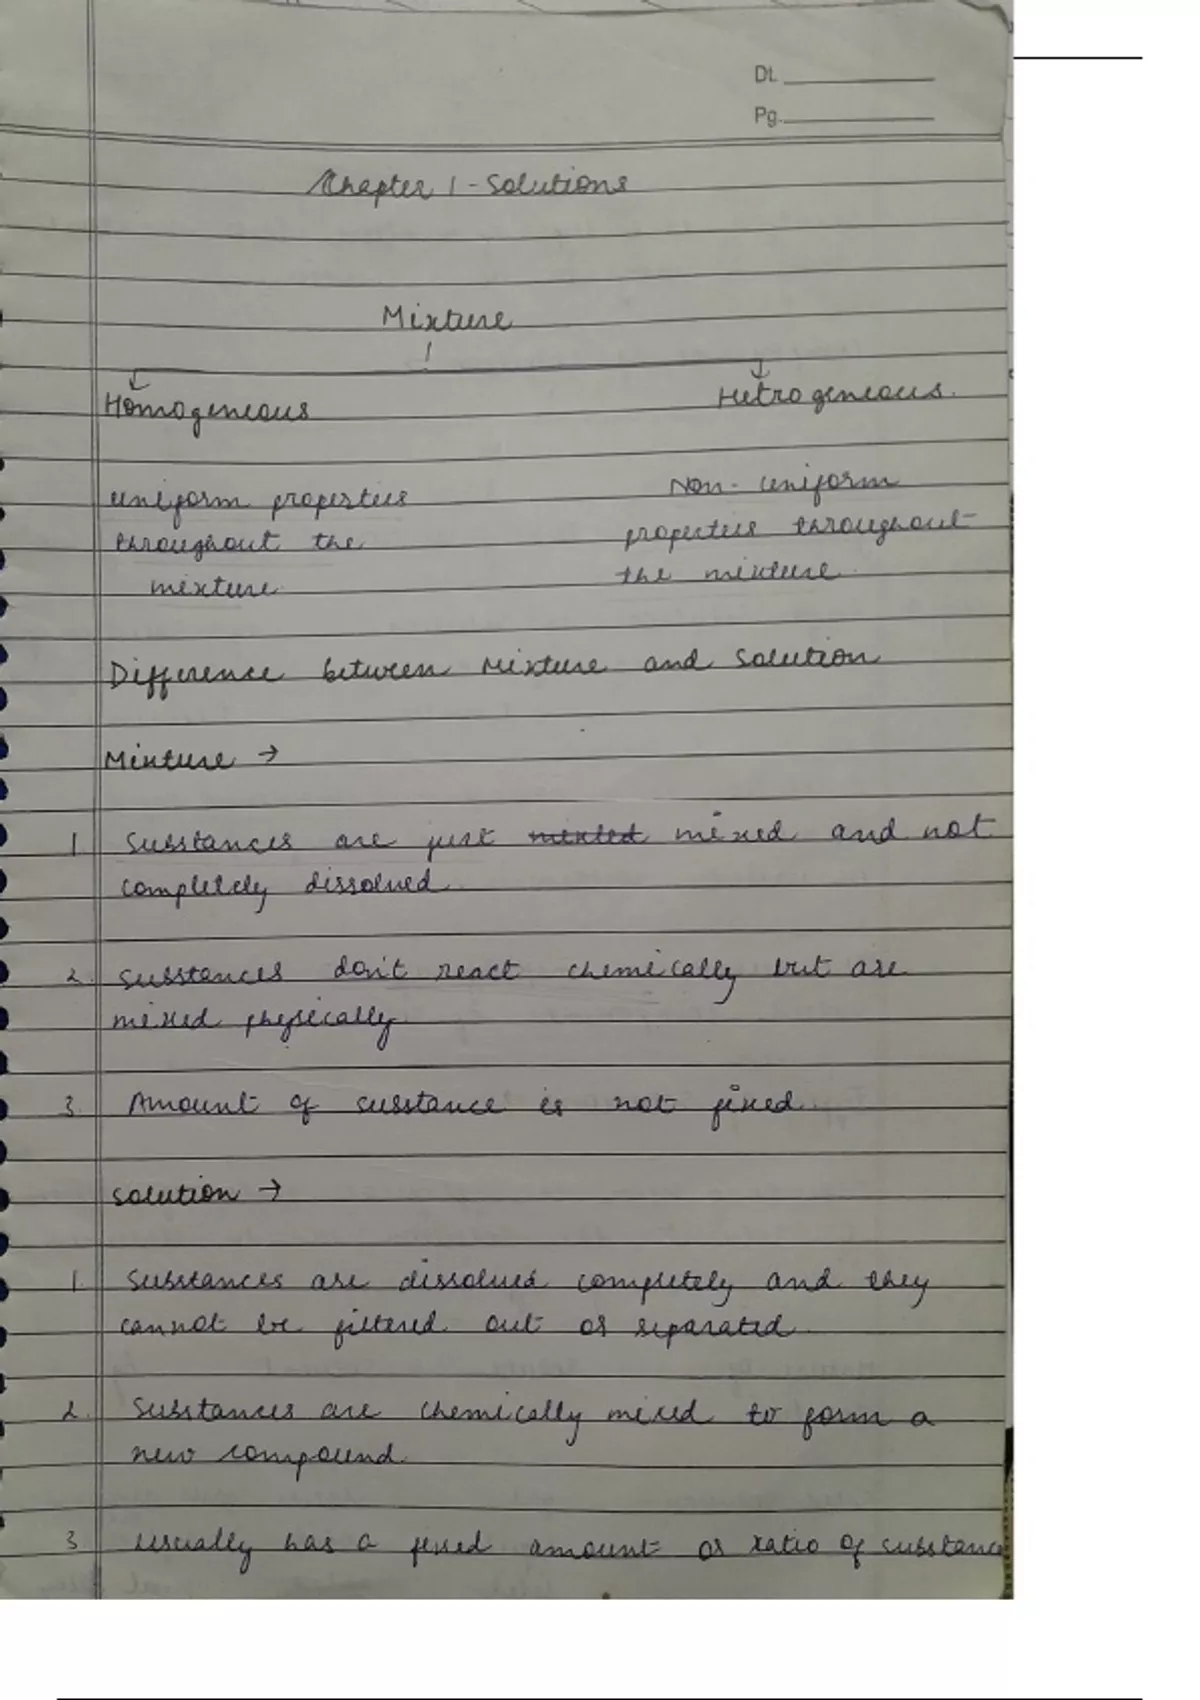 Dt.
Pg.
Chapter 1 - Solutions
Mixture
Homogeneous
Hetrogeneous.
uniform properties
throughout the
mixture.
Non-uniform
properties throughout
the mixture.
Difference between Mixture and Solution
Mixture →
1. Substances are just mixed and not
completely dissolved.
2. Substances don't react chemically but are
mixed physically
3. Amount of substance is not fixed.
Solution →
1. Substances are dissolved completely and they
cannot be filtered out or separated.
2. Substances are chemically mixed to form a
new compound.
3 Usually has a fixed amount or ratio of substance